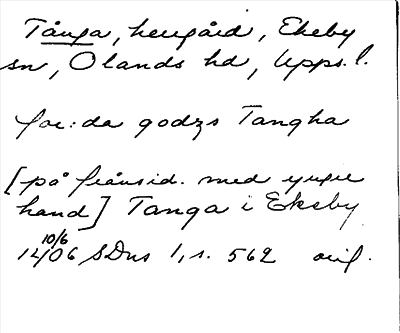 Tånga, herrgård, Ekeby
sn, Olands hd, Upps.l.
foc:da godzs Tangha
[på frånsid. med yngre
hand] Tanga i Ekeby
10/6 1406 SDns 1, s. 562 orig.